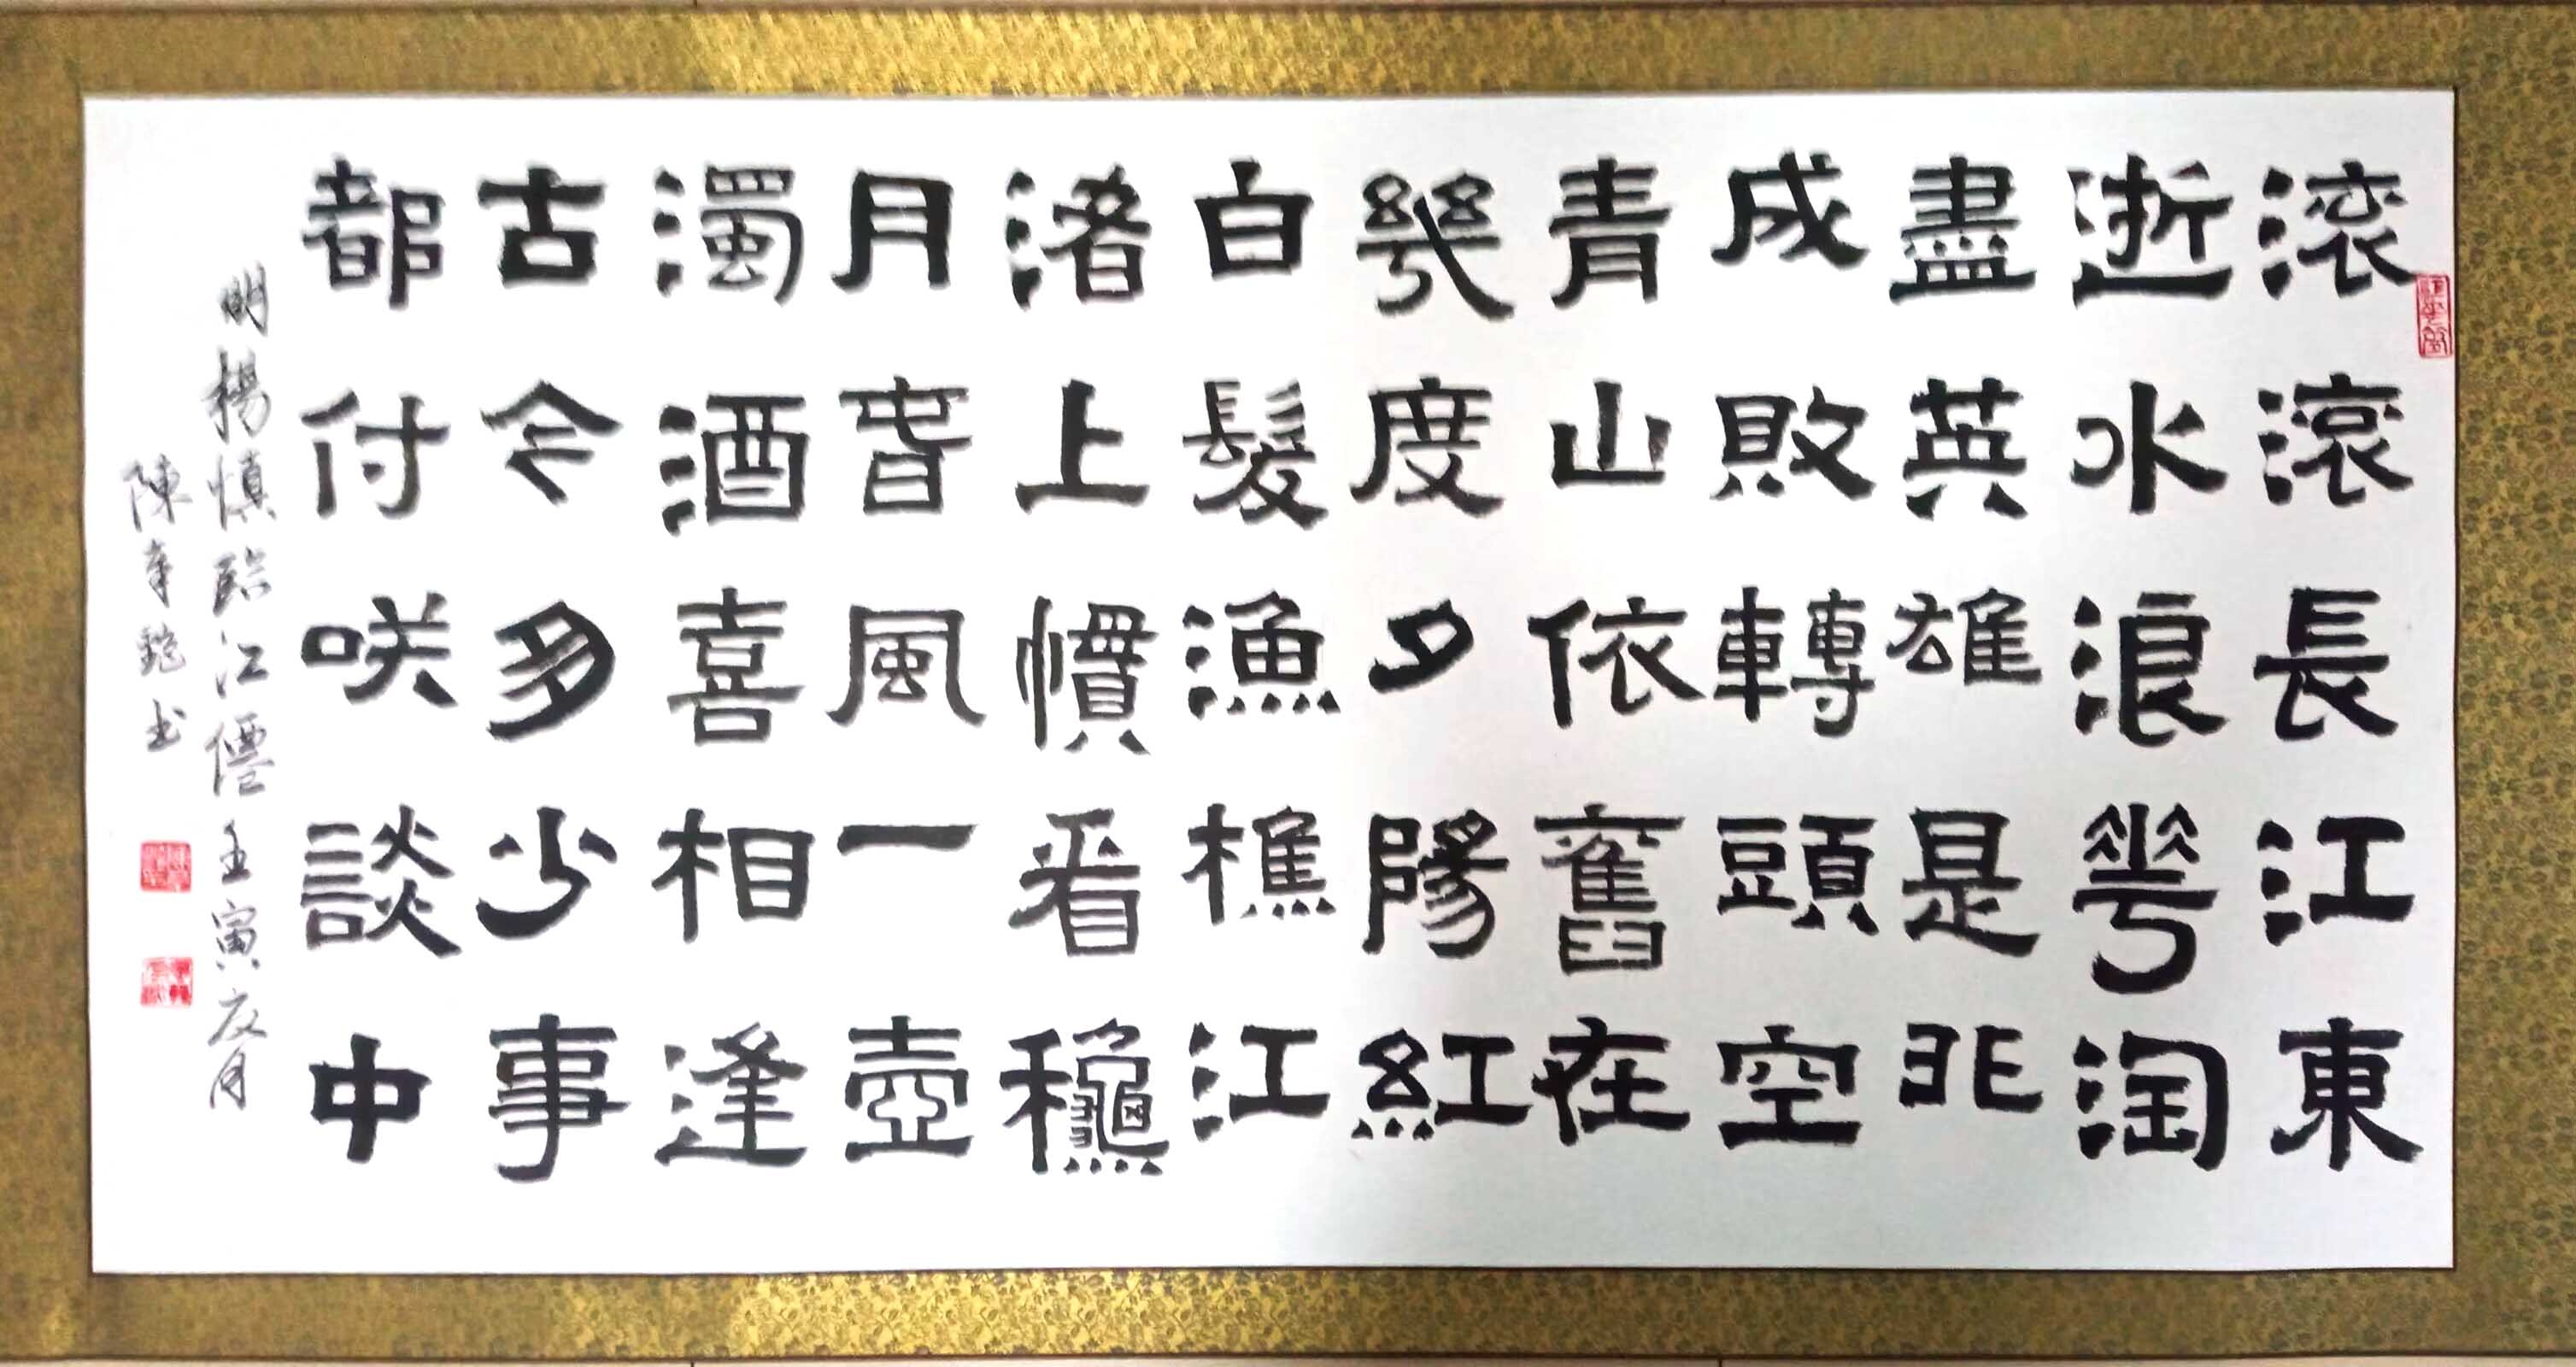 滚滚長江東
逝水浪華淘
盡英雄是非
成敗轉頭空
青山依舊在
幾度夕陽紅
白髮漁樵江
渚上慣看穐
月旾風一壺
濁酒喜相逢
古今多少事
都付咲談中
明楊慎臨江僊壬寅夏月
陳章书